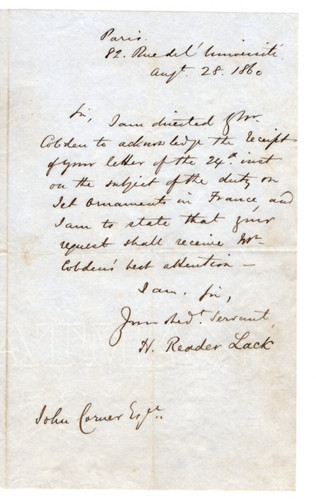 Paris.
82. Rue de l'Université
Augt. 28. 1860
Sir, I am directed by Mr
Cobden to acknowledge the receipt
of your letter of the 24th inst
on the subject of the duty on
Jet Ornaments in France, and
I am to state that your
request shall receive Mr
Cobden's best attention —
I am. Sir,
Your Obedt. Servant,
H. Reader Lack
John Corner Esqr.